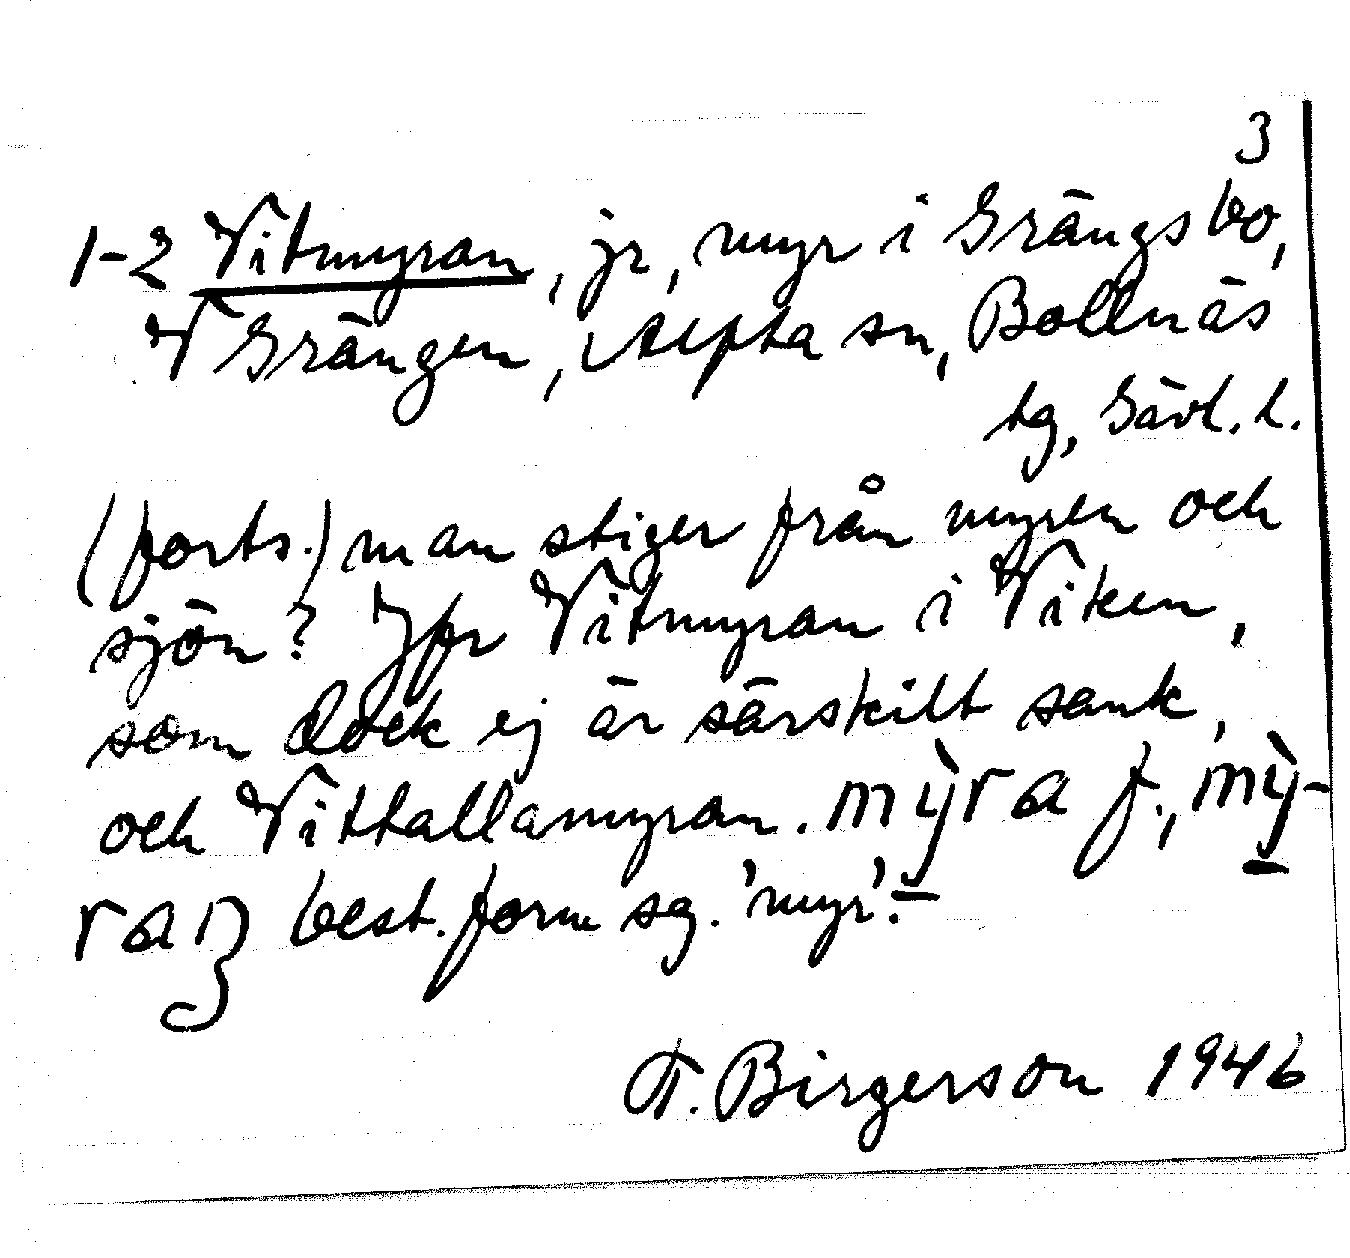 3
1-2 Vitmyran, jr, myr i Grängsbo,
V Grängen, Alfta sn, Bollnäs
tg, Gävl. l.
(forts.) man stiger från myren och
sjön? Jfr Vitmyran i Viken,
som dock ej är särskilt sank,
och Vittallamyran. mỳra f., mỳ-
raɳ best. form sg. 'myr'.-
T. Birgerson 1946